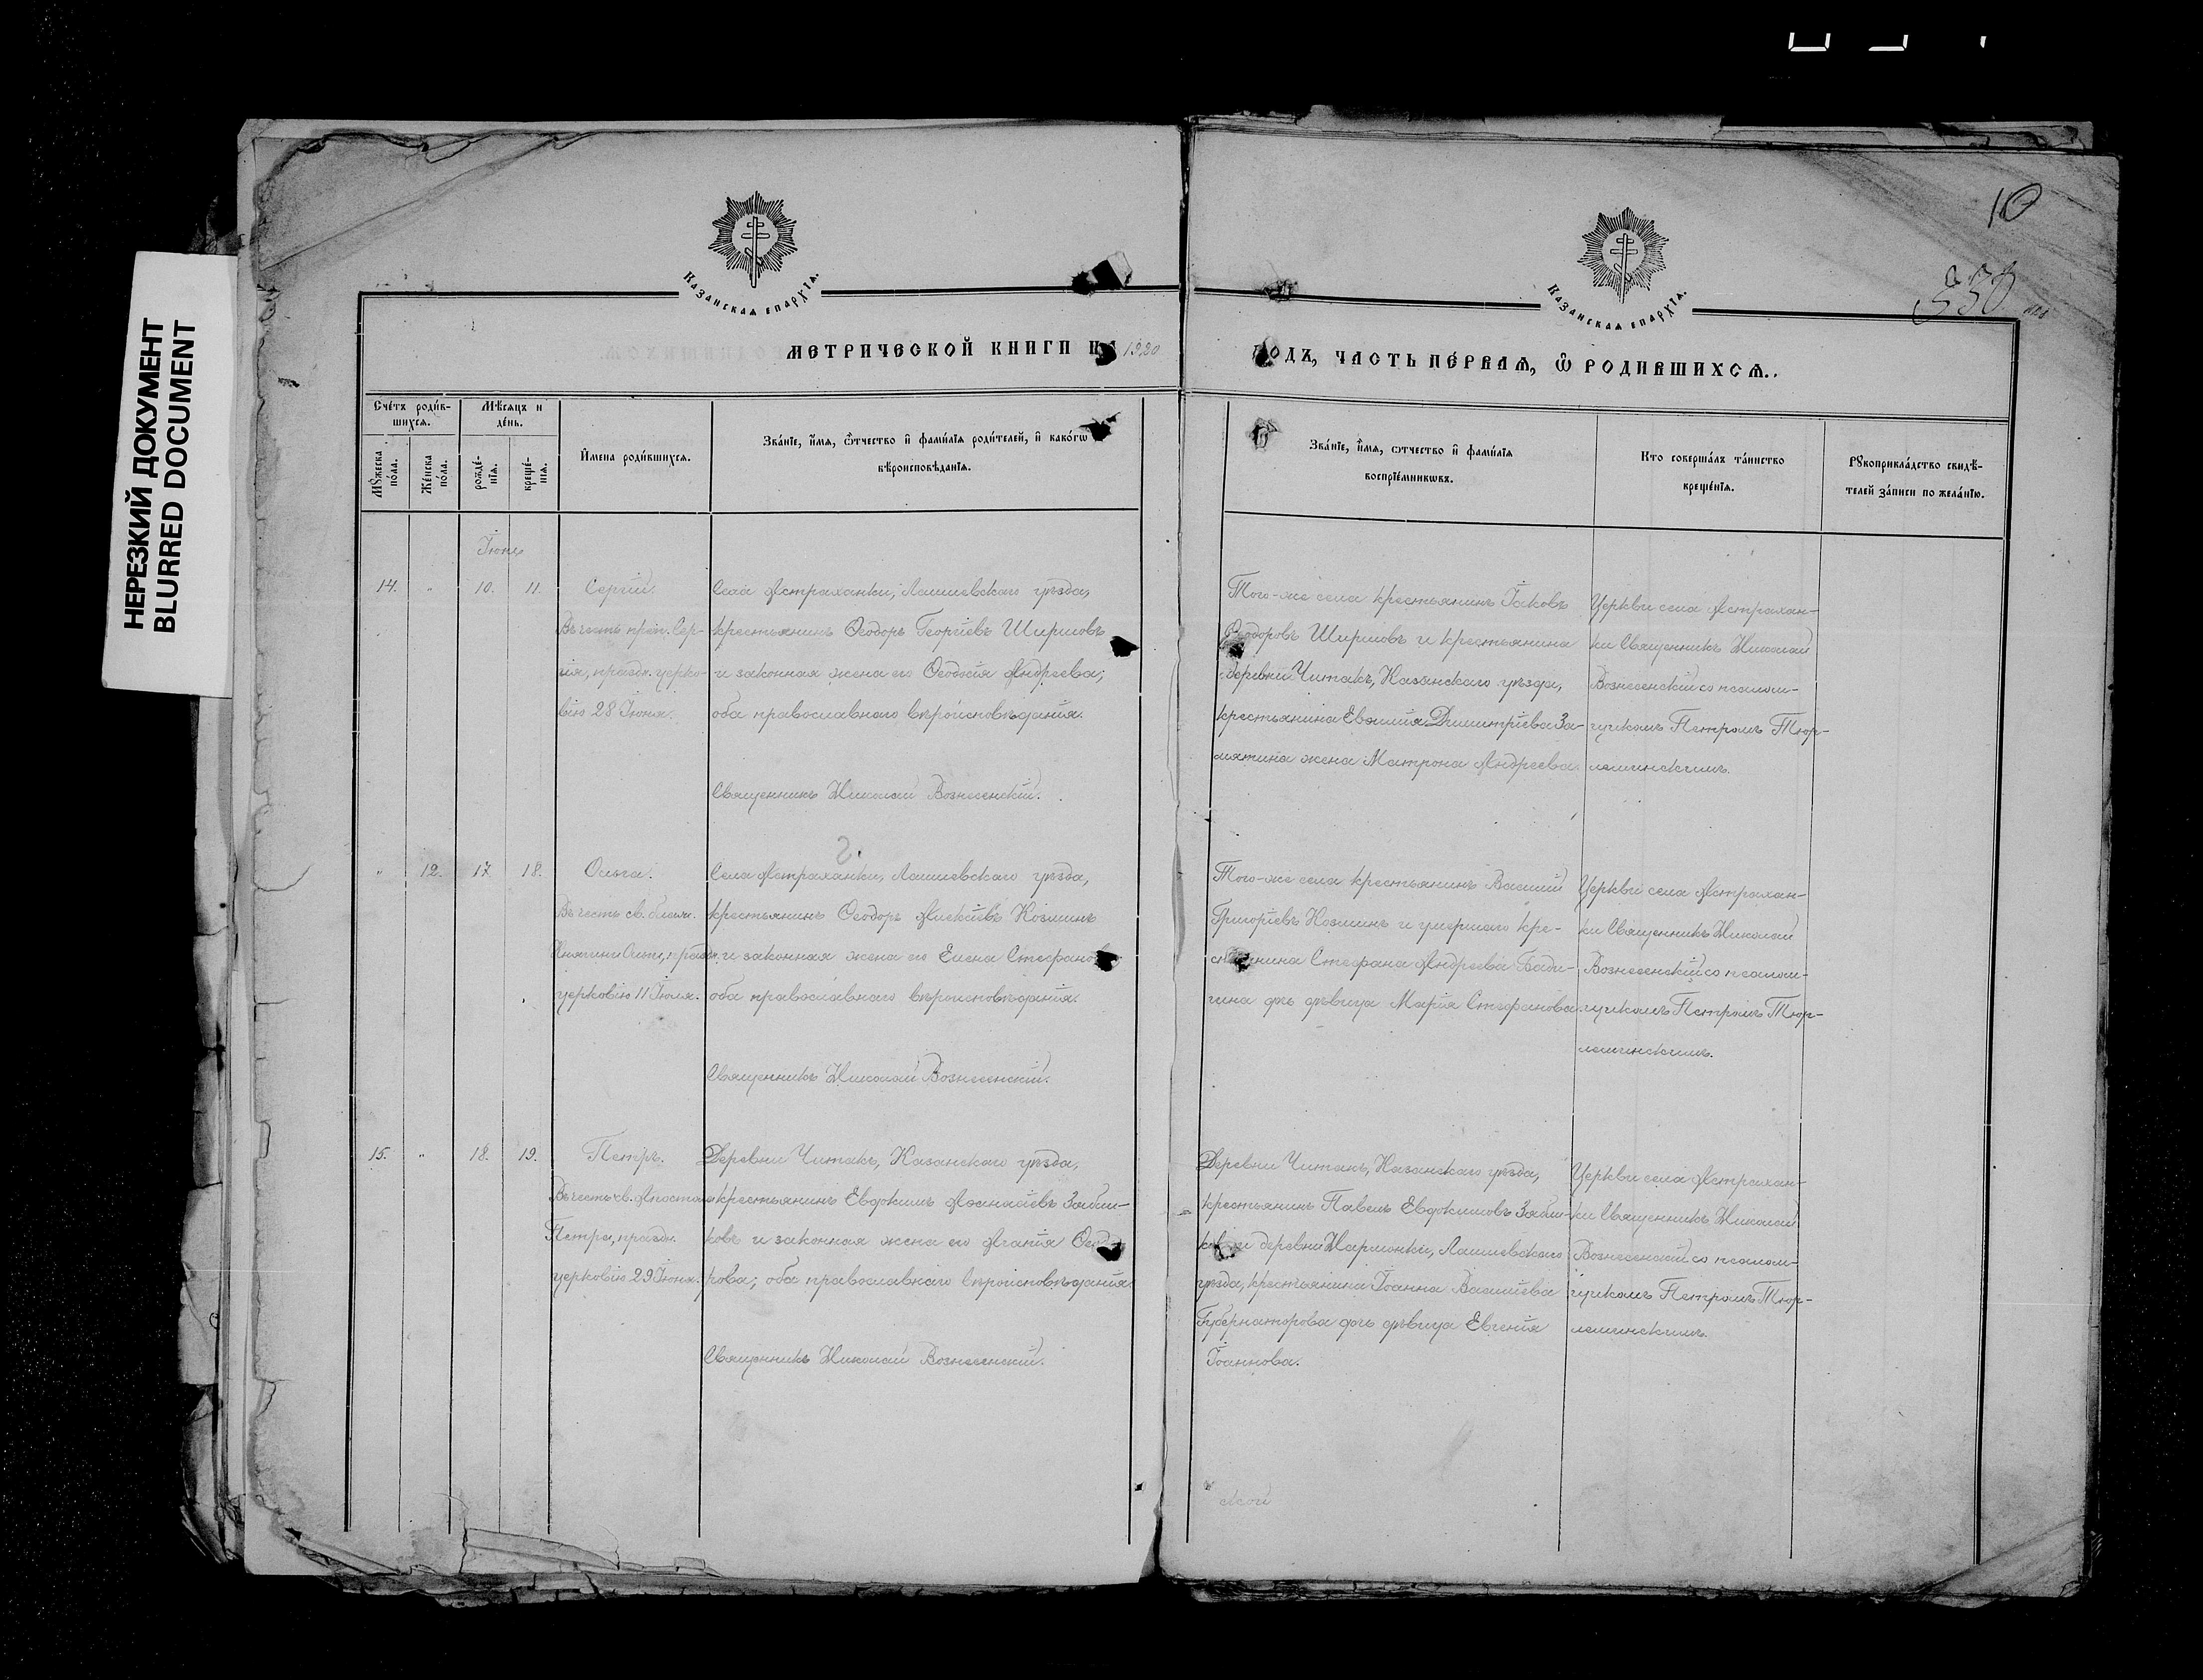 НЕРЕЗКИЙ ДОКУМЕНТ
BLURRED DOCUMENT
10
330
Казанская епархїѧ.
Казанская епархїѧ.
МЕТРИЧЕСКОЙ КНИГИ НА 1920
ГОДЪ, ЧАСТЬ ПЕ́РВАѦ, Ѽ РОДИВШИХСѦ.
Сче́тъ роди́в-
шихсѧ.
Мѣ́сѧцъ и
де́нь.
Мꙋ́жеска
по́ла.
Же́нска
по́ла.
рожде́-
нїѧ.
креще́-
нїѧ.
И҆мена роди́вшихсѧ.
Зва́нїе, и҆́мѧ, ѻ҆́тчество и҆ фами́лїѧ роди́телей, и҆ како́гѡ
вѣроисповѣ́данїѧ.
Зва́нїе, и҆́мѧ, ѻтчество и҆ фами́лїѧ
воспрїе́мникѡвъ.
Кто соверша́лъ та́инство
креще́нїѧ.
Рꙋкоприкла́дство свидѣ́-
телей за́писи по жела́нїю.
Іюнь
14. " 10. 11. Сергій.
Въ честь преп. Сер-
гія, праздн. церко-
вію 28 Іюня.
Села Астраханки, Лаишевскаго уѣзда,
крестьянинъ Ѳеодоръ Георгіевъ Ширшовъ
и законная жена его Ѳеодосія Андреева;
оба православнаго вѣроисповѣданія.
Священникъ Николай Вознесенскій.
Того-же села крестьянинъ Іаковъ
Ѳеодоровъ Ширшовъ и крестьянина
деревни Читакъ, Казанскаго уѣзда,
крестьянина Евѳимія Димитріева За-
мятина жена Матрона Андреева.
Церкви села Астрахан-
ки Священникъ Николай
Вознесенскій со псалом-
щикомъ Петромъ Тюр-
лешинскимъ.
" 12. 17. 18. Ольга.
Въ честь св. благов.
Княгини Ольги, праздн.
церковію 11 Іюля.
Села Астраханки, Лаишевскаго уѣзда,
крестьянинъ Ѳеодоръ Алексіевъ Козминъ
и законная жена его Елена Стефанова
оба православнаго вѣроисповѣданія.
Священникъ Николай Вознесенскій.
Того-же села крестьянинъ Василій
Григоріевъ Козминъ и умершаго кре-
стьянина Стефана Андреева Бади-
гина дчь дѣвица Марія Стефанова.
Церкви села Астрахан-
ки Священникъ Николай
Вознесенскій со псалом-
щикомъ Петромъ Тюр-
лешинскимъ.
15. " 18. 19. Петръ.
Въ честь св. Апостола
Петра, праздн.
церковію 29 Іюня.
Деревни Читакъ, Казанскаго уѣзда,
крестьянинъ Евдокимъ Аѳанасіевъ Заби-
ковъ и законная жена его Агапія Ѳеодо-
рова; оба православнаго вѣроисповѣданія.
Священникъ Николай Вознесенскій.
Деревни Читакъ, Казанскаго уѣзда,
крестьянинъ Павелъ Евдокимовъ Заби-
ковъ и деревни Нармонки, Лаишевскаго
уѣзда, крестьянина Іоанна Василіева
Губернаторова дочь дѣвица Евгенія
Іоаннова.
Церкви села Астрахан-
ки Священникъ Николай
Вознесенскій со псалом-
щикомъ Петромъ Тюр-
лешинскимъ.